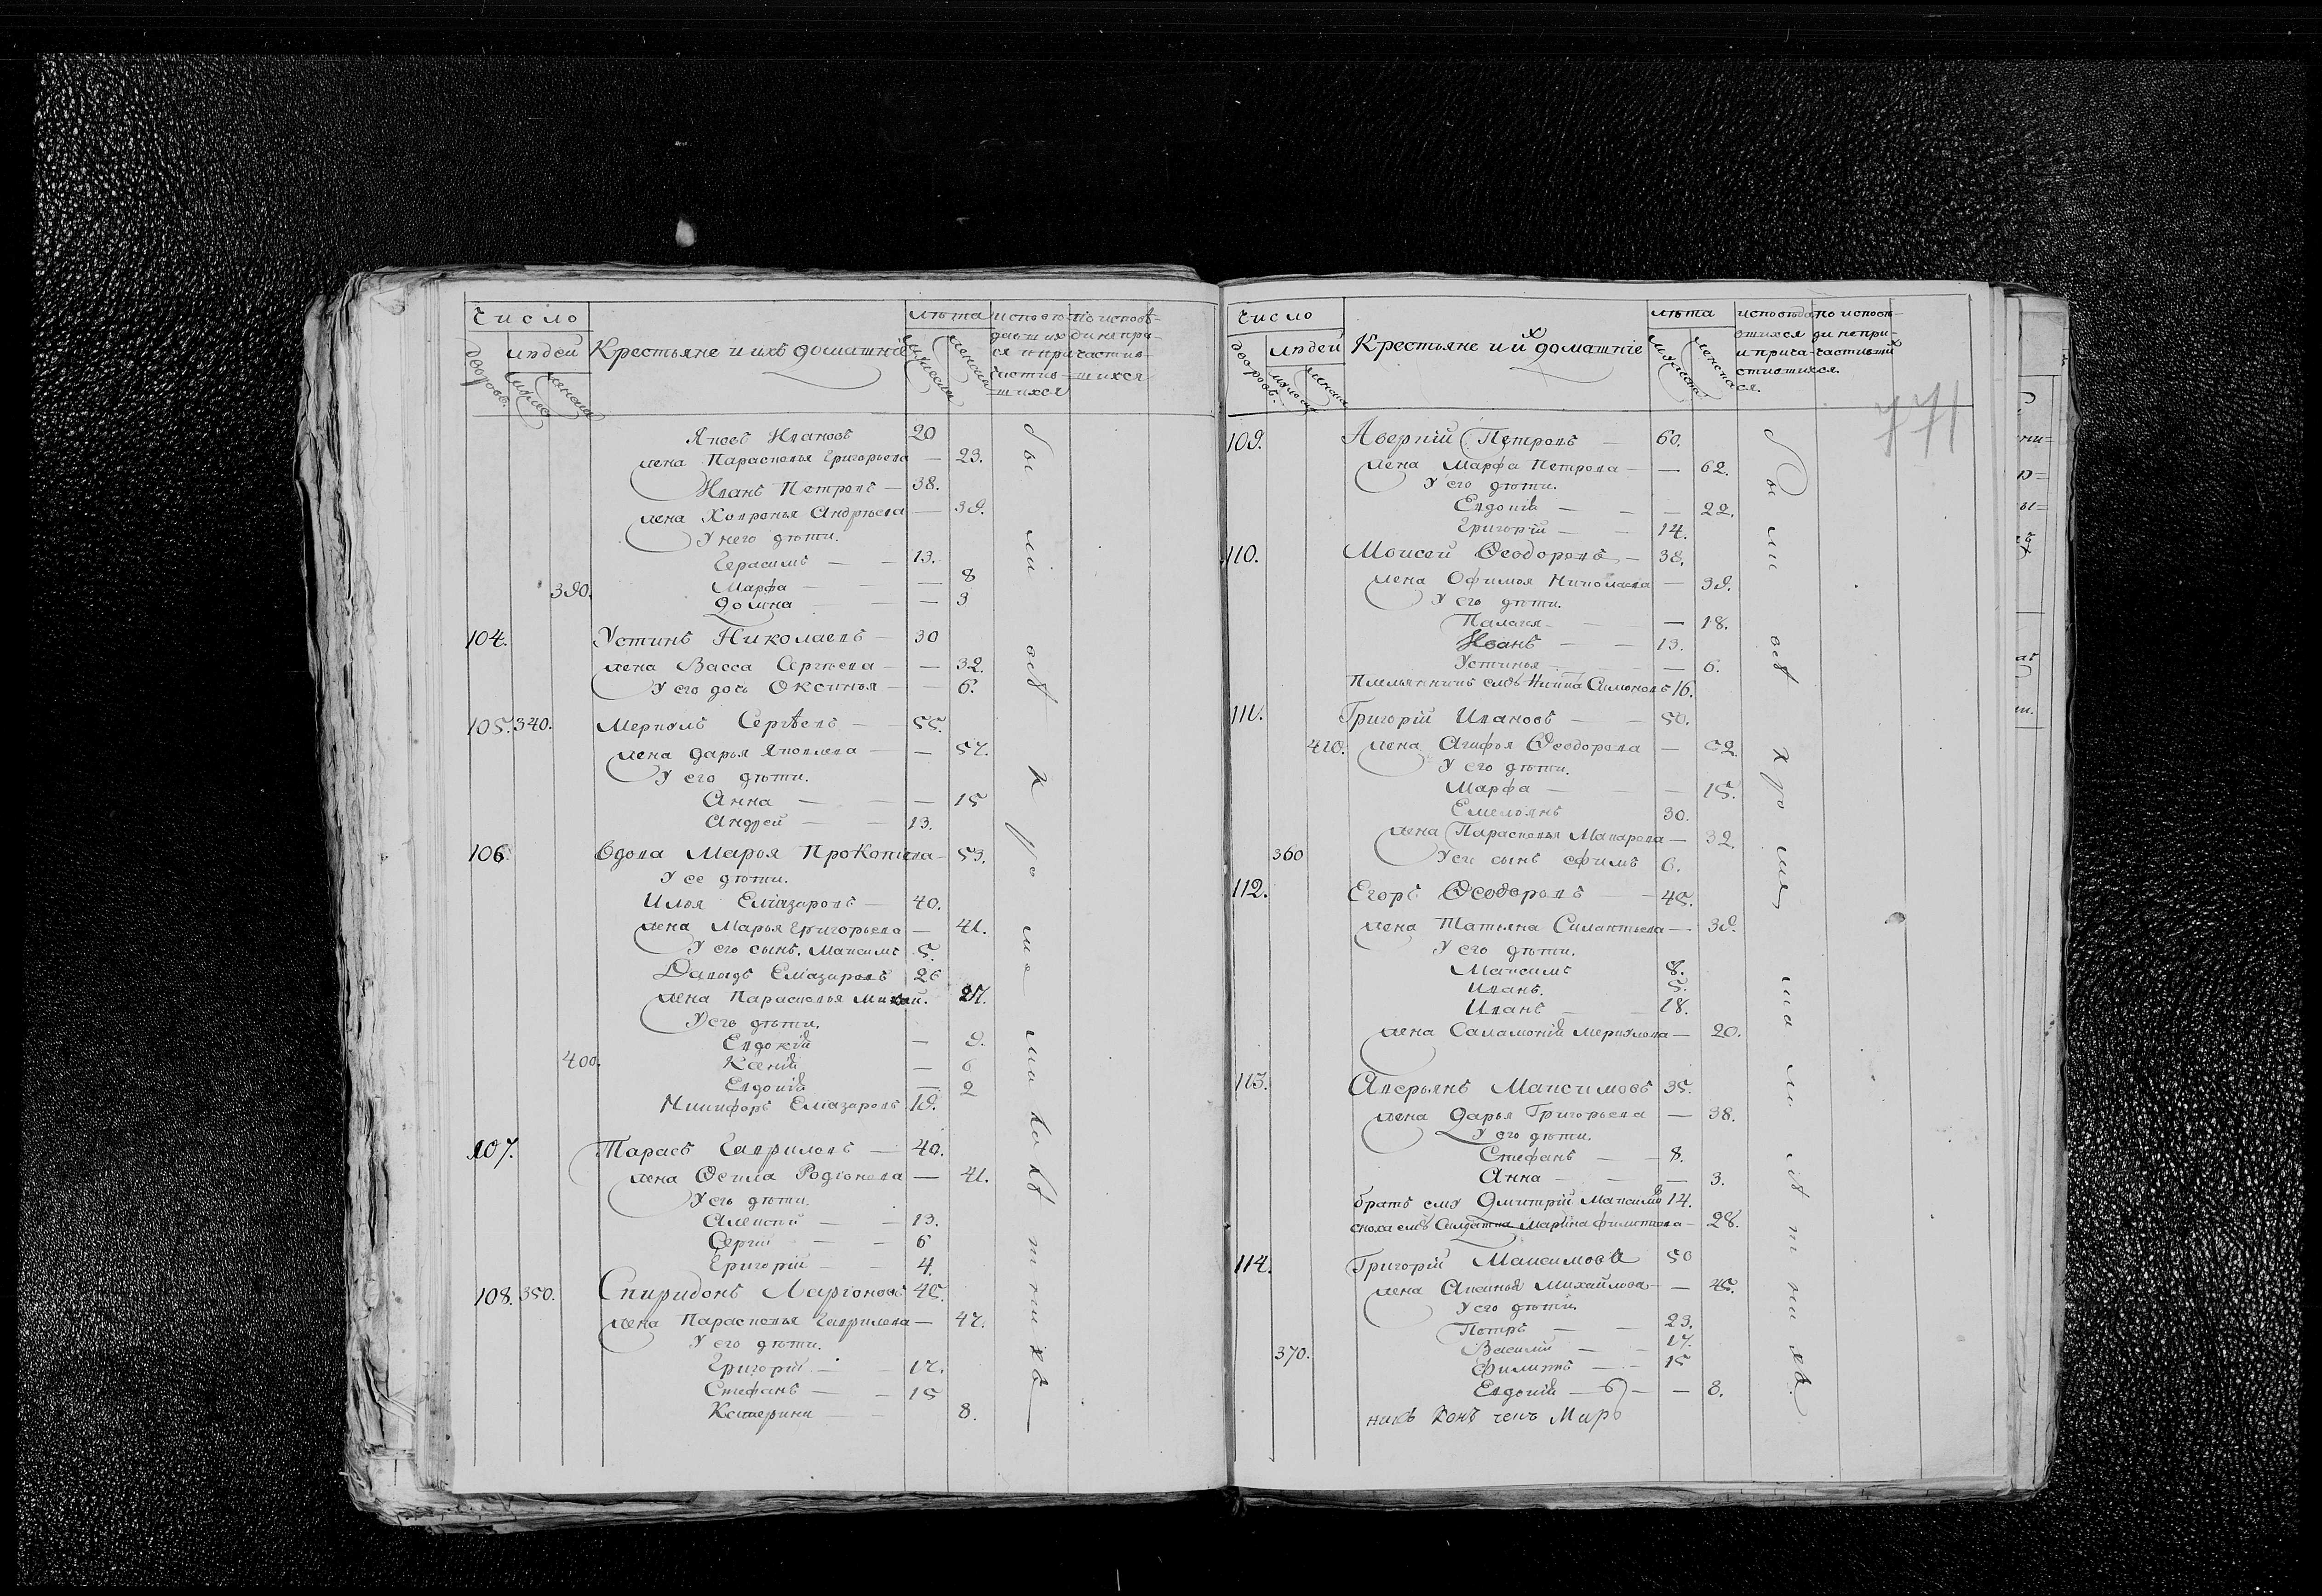 Число
людей
дворовъ.
мужес
женска
Крестьяне и ихъ домашніе
лѣта
мужеска
женска
исповѣ-
давших
ся и при
частив-
шихся
по исповѣ-
ди непри-
частив-
шихся
Яковъ Ивановъ 20
жена Парасковья Григорьева — 23.
Иванъ Петровъ — 38.
жена Ховронья Андрѣева — 39.
У него дѣти.
Герасимъ — — 13.
Марфа — — 8
390.
Домна — — 3
104. Устинъ Николаевъ — 30
жена Васса Сергѣева — — 32.
У его дочь Оксинья — — 6.
105. 340. Меркулъ Сергѣевъ — — 55.
жена Дарья Яковлева — — 57.
У его дѣти.
Анна — — — 15
Андрей — — 13.
106 Вдова Марья Прокопіева — 59.
У ее дѣти.
Илья Еліазаровъ — 40.
жена Марья Григорьева — 41.
У его сынъ. Максимъ 5.
Давыдъ Еліазаровъ 26
жена Парасковья 27.
У его дѣти.
Евдокія — 9.
400. Ксенія — 6
Евдокія — 2
Никифоръ Еліазаровъ 19.
107. Тарасъ Гавриловъ — 40.
жена Родіонова — 41.
У его дѣти.
Алексѣй — — 13.
Сергій — — 6
Григорій — — 4.
108. 350. Спиридонъ Ларіоновъ 45.
жена Парасковья Гаврилова — 47.
У его дѣти.
Григорій — — 17.
Стефанъ — — 15
Катерина — — 8.
были всѣ кроме малолѣтнихъ
Число
людей
дворовъ.
мужеска
женска
Крестьяне и их домашніе
лѣта
мужеска
женска
исповѣдо
вшихся
и прича-
стившихся
ся.
по исповѣ-
ди непри-
частивших
ся.
771
109. Аверкій Петровъ — 60.
жена Марфа Петрова — — 62.
У его дѣти.
Евдокія — — — 22.
Григорій — — 14.
110. Моисей Ѳеодоровъ — 38.
жена Офимья Николаева — 39.
У его дѣти.
Палагея — — — 18.
Иванъ — — 13.
Устинья — — 6.
Племянникъ емѹ Симоновъ 16.
111. Григорій Ивановъ — — 50.
410. жена Агафья Ѳеодорова — 52.
У его дѣти.
Марфа — — — 15.
Емельянъ 30.
жена Парасковья Макарова — 32.
360 У его сынъ Ефимъ 6.
112. Егоръ Ѳеодоровъ — — 45.
жена Татьяна Силантьева — 39.
У его дѣти.
Максимъ 8.
Иванъ. 5.
Иванъ — — 18.
жена Саламонія Меркулова — 20.
113. Аверьянъ Максимовъ 35.
жена Дарья Григорьева — 38.
У его дѣти.
Стефанъ — — 8.
Анна — — — 3.
братъ ему Дмитрій Максимовъ 14.
сноха емѹ Солдатка Марина — 28.
114. Григорій Максимовъ 50
жена Михайлова — — 45.
У его дѣти.
Петръ — — 23.
Василій — — 17.
370. Филиппъ — — 15
Евдокія — — — 8.
были всѣ кроме малолѣтнихъ